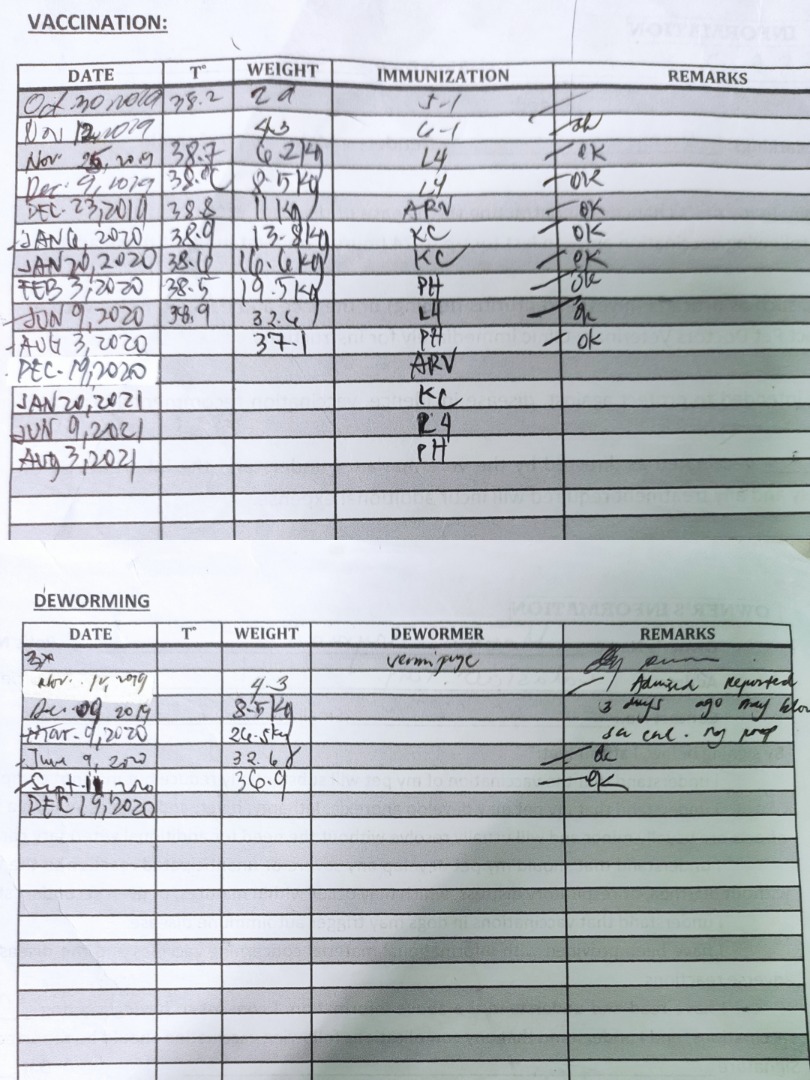 VACCINATION:
DATE T° WEIGHT IMMUNIZATION REMARKS
Oct 30 2019 38.2 2.9 5-1
Nov 12, 2019 4.3 6-1 ok
Nov 25, 2019 38.7 6.2 kg L4 ok
Dec. 9, 2019 38. 8.5 kg L4 ok
DEC. 23, 2019 38.8 11 kg ARV ok
JAN 6, 2020 38.9 13.8 kg KC ok
JAN 20, 2020 38.6 16.6 kg KC ok
FEB 3, 2020 38.5 19.5 kg PH ok
JUN 9, 2020 38.9 32.6 L4 ok
AUG 3, 2020 37.1 PH ok
DEC. 19, 2020 ARV
JAN 20, 2021 KC
JUN 9, 2021 L4
AUG 3, 2021 PH
DEWORMING
DATE T° WEIGHT DEWORMER REMARKS
3x vermifuge
Nov. 12, 2019 4.3 Advised reported
Dec. 09 2019 8.5 kg 3 days ago may
Mar. 9, 2020 26.5 kg
June 9, 2020 32.6 ok
Sept. 11, 2020 36.9 ok
DEC 19, 2020